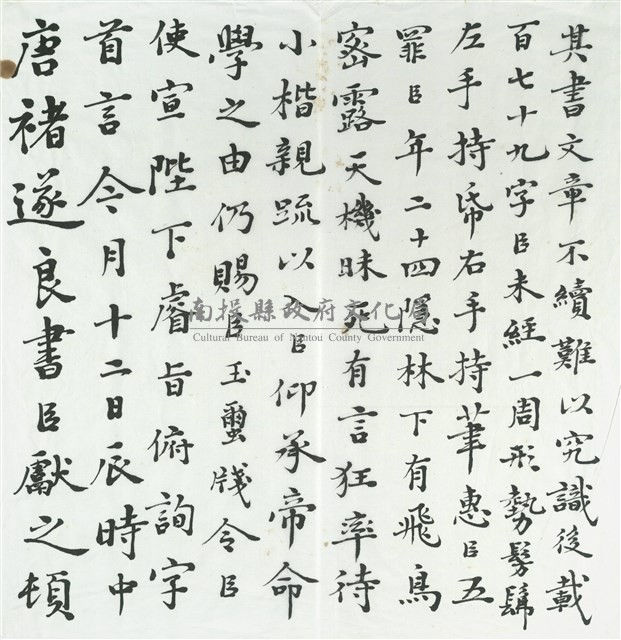 唐褚遂良書臣獻之頓
首言今月十二日辰時中
使宣陛下睿旨俯詢字
學之由仍賜臣玉璽牋令臣
小楷親疏以入臣仰承帝命
密露天機昧死有言狂率待
罪臣年二十四隱林下有飛鳥
左手持帋右手持筆惠臣五
百七十九字臣未經一周形勢髣髴
其書文章不續難以究識後載
南投縣政府文化局
Cultural Bureau of Nantou County Government